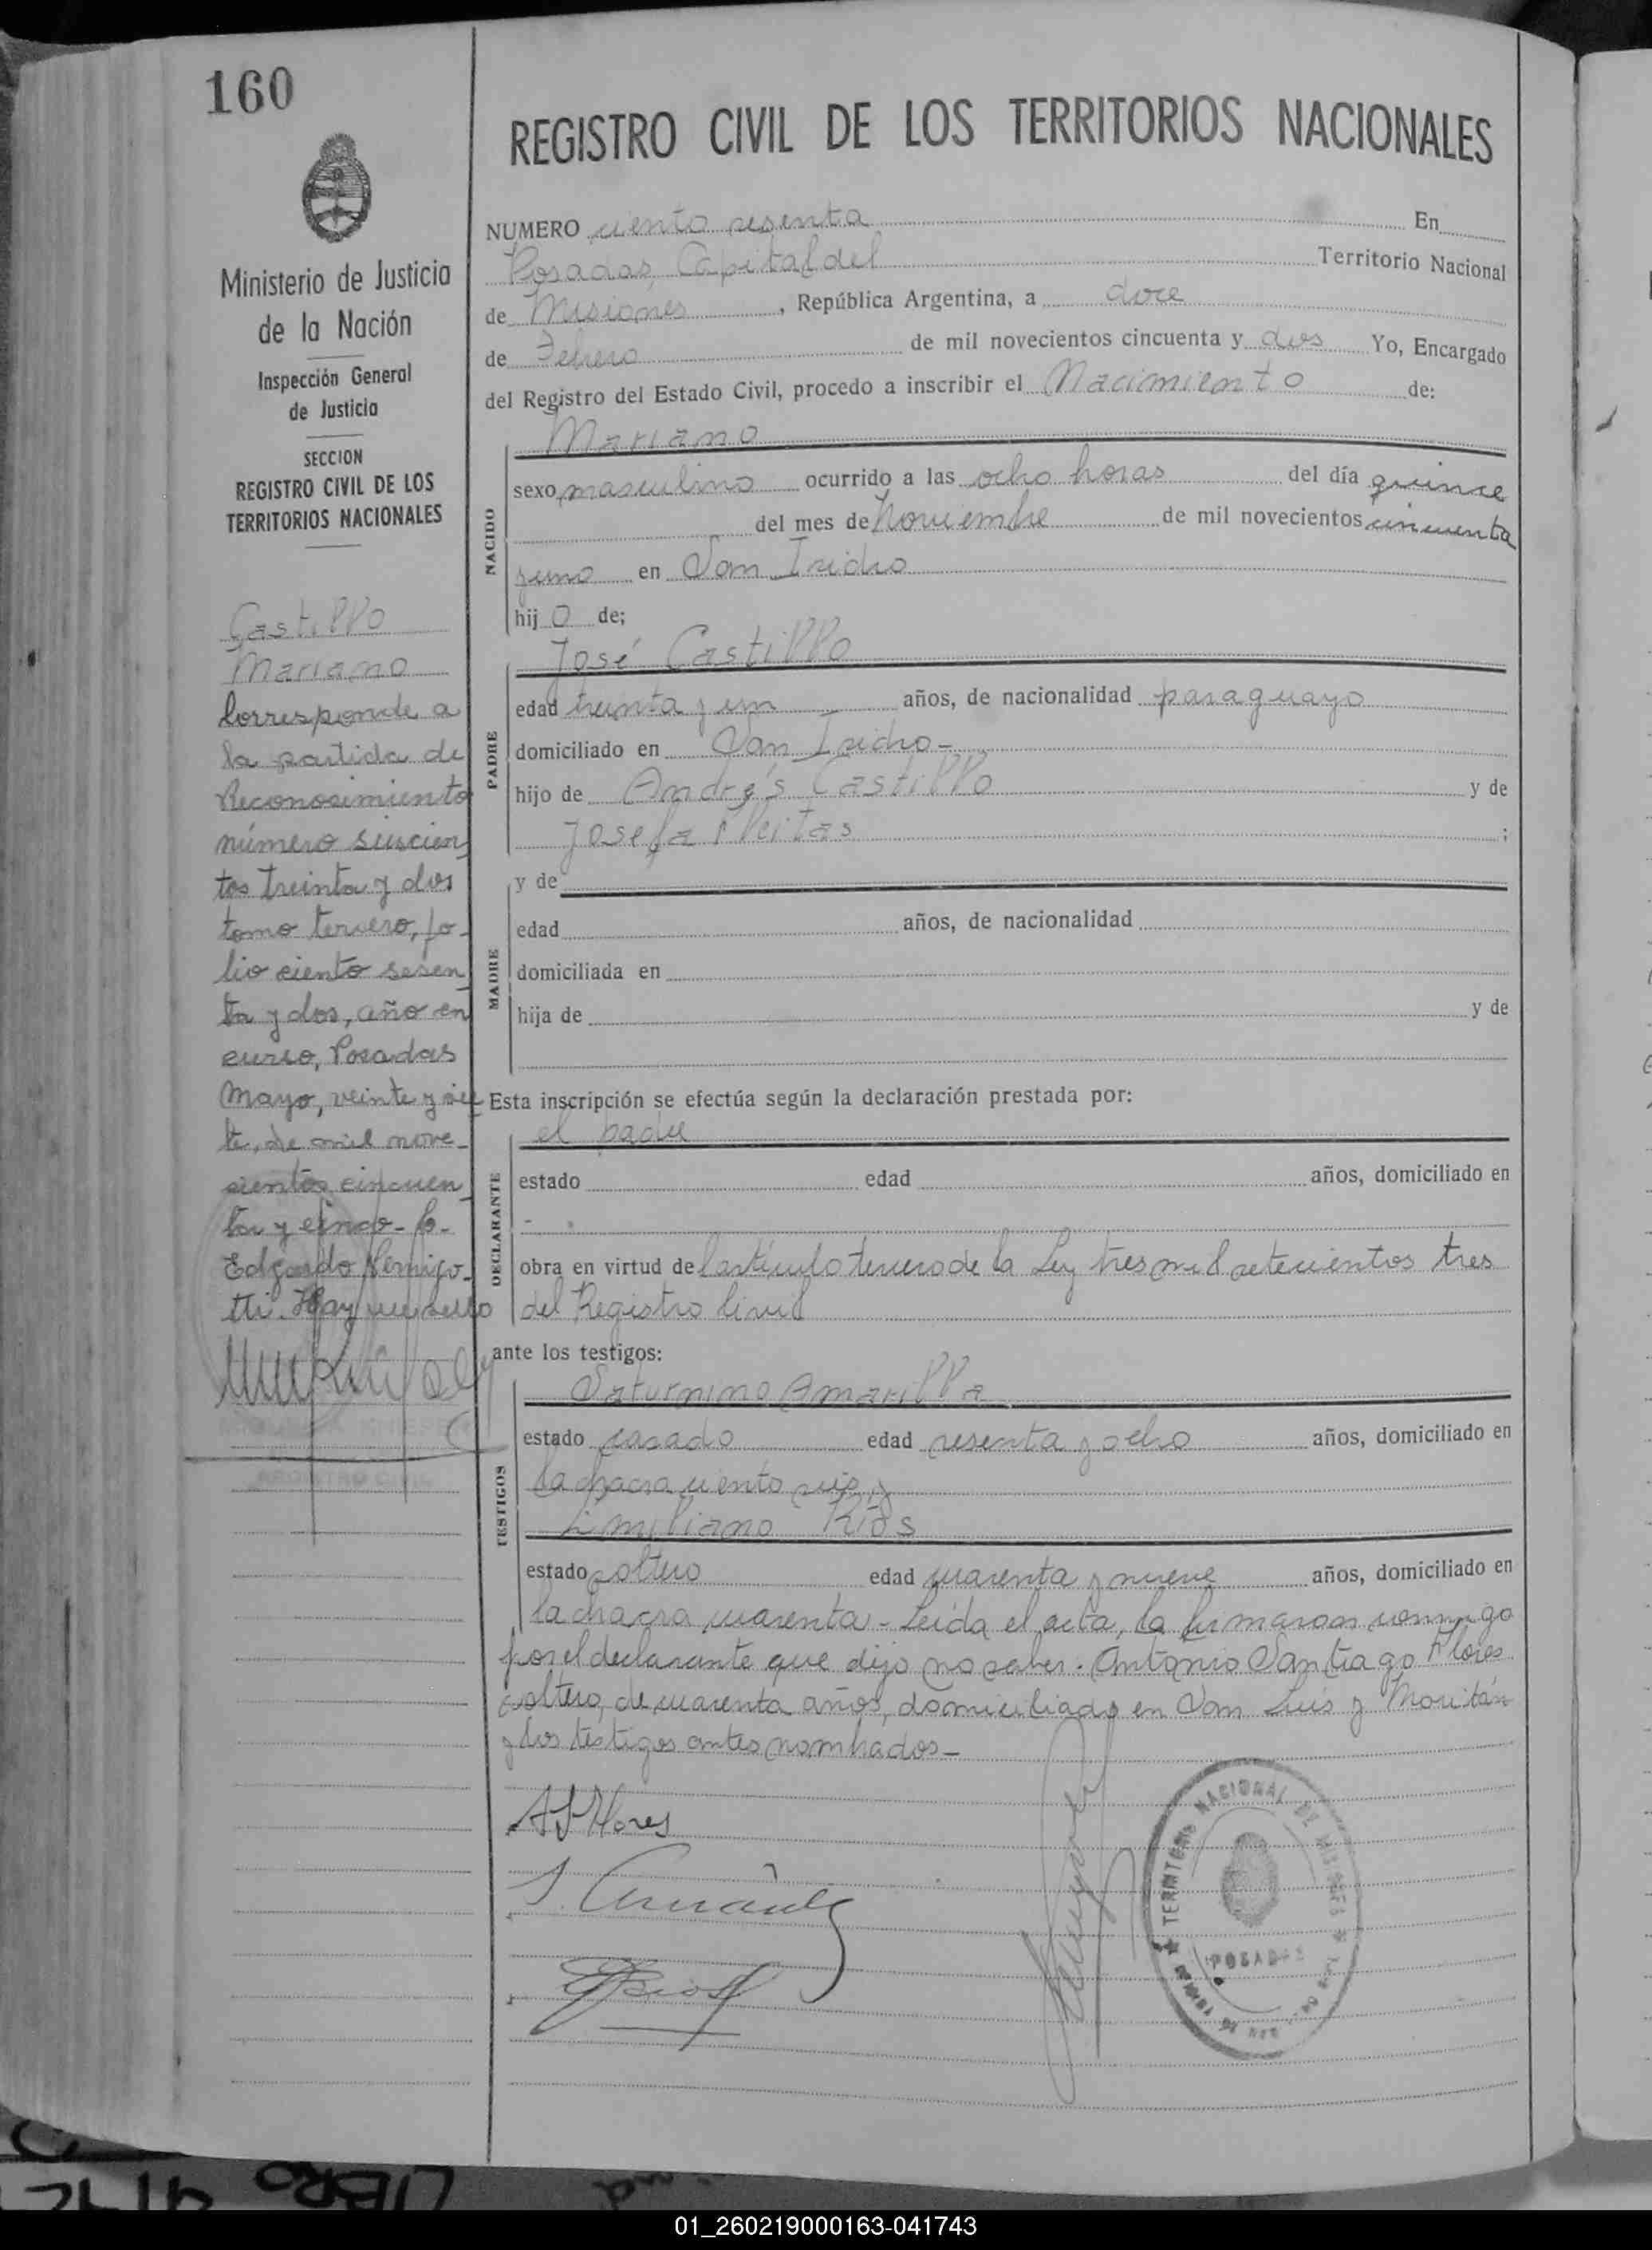 160
Ministerio de Justicia
de la Nación
Inspección General
de Justicia
SECCION
REGISTRO CIVIL DE LOS
TERRITORIOS NACIONALES
Castillo
Mariano
Corresponde a
la partida de
Reconocimiento
número seiscien
tos treinta y dos
tomo tercero, fo-
lio ciento sesen
ta y dos, año en
curso, Posadas
Mayo, veinte y sie
te, de mil nove-
cientos cincuen
ta y cinco-
Edgardo
Hay un sello
REGISTRO CIVIL DE LOS TERRITORIOS NACIONALES
NUMERO ciento sesenta En
Posadas, Capital del Territorio Nacional
de Misiones, República Argentina, a doce
de Febrero de mil novecientos cincuenta y dos Yo, Encargado
del Registro del Estado Civil, procedo a inscribir el Nacimiento de:
Mariano
NACIDO
sexo masculino ocurrido a las ocho horas del día quince
del mes de Noviembre de mil novecientos cincuenta
y uno en San Isidro
hijo de;
José Castillo
PADRE
edad treinta y un años, de nacionalidad paraguayo
domiciliado en San Isidro-
hijo de Andrés Castillo y de
Josefa Fleitas ;
y de
MADRE
edad años, de nacionalidad
domiciliada en
hija de y de
Esta inscripción se efectúa según la declaración prestada por:
el padre
DECLARANTE
estado edad años, domiciliado en
obra en virtud del artículo tercero de la Ley tres mil setecientos tres
del Registro Civil
ante los testigos:
Saturnino Amarilla
TESTIGOS
estado casado edad sesenta y ocho años, domiciliado en
la chacra ciento seis y
Emiliano Ríos
estado soltero edad cuarenta y nueve años, domiciliado en
la chacra cuarenta - Leída el acta, la firmaron conmigo
por el declarante que dijo no saber. Antonio Santiago Flores
soltero, de cuarenta años, domiciliado en San Luis y Moritán
y los testigos antes nombrados-
A S Flores
TERRITORIO NACIONAL DE MISIONES
POSADAS
LIBRO
01_260219000163-041743